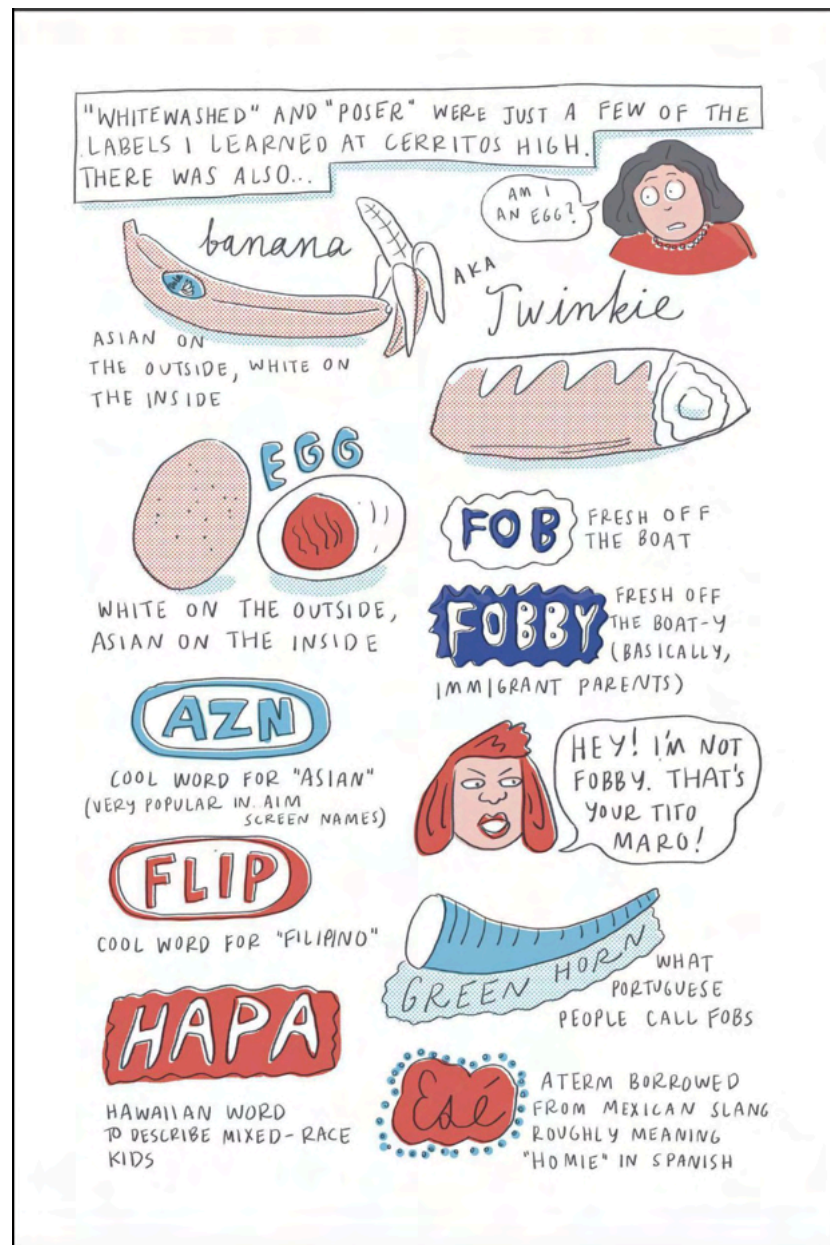 "WHITEWASHED" AND "POSER" WERE JUST A FEW OF THE
LABELS I LEARNED AT CERRITOS HIGH.
THERE WAS ALSO...
AM I
AN EGG?
banana
AKA
Twinkie
ASIAN ON
THE OUTSIDE, WHITE ON
THE INSIDE
EGG
WHITE ON THE OUTSIDE,
ASIAN ON THE INSIDE
FOB
FRESH OFF
THE BOAT
FOBBY
FRESH OFF
THE BOAT-Y
(BASICALLY,
IMMIGRANT PARENTS)
AZN
COOL WORD FOR "ASIAN"
(VERY POPULAR IN AIM
SCREEN NAMES)
HEY! I'M NOT
FOBBY. THAT'S
YOUR TITO
MARO!
FLIP
COOL WORD FOR "FILIPINO"
GREEN HORN
WHAT
PORTUGUESE
PEOPLE CALL FOBS
HAPA
HAWAIIAN WORD
TO DESCRIBE MIXED-RACE
KIDS
Esé
A TERM BORROWED
FROM MEXICAN SLANG
ROUGHLY MEANING
"HOMIE" IN SPANISH